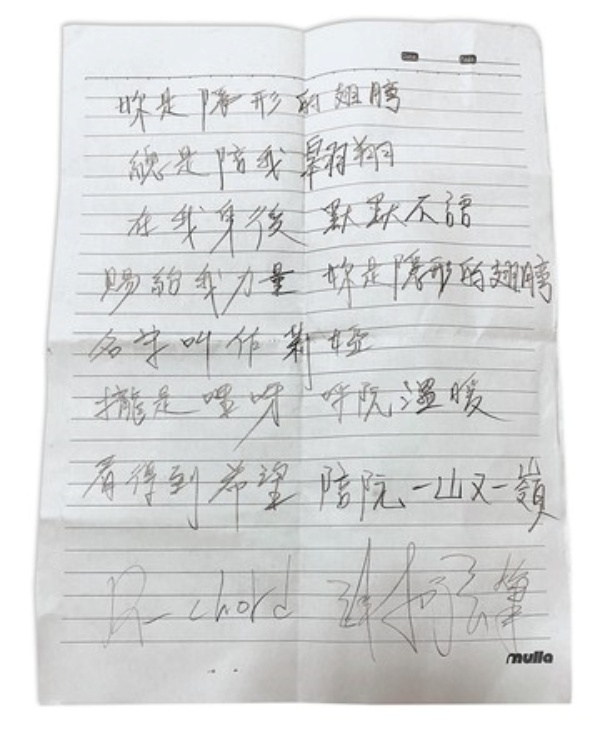 妳是隱形的翅膀
總是陪我翱翔
在我身後 默默不語
賜給我力量 妳是隱形的翅膀
名字叫作莿婭
攏是 嘿呀 呼阮溫暖
看得到希望 陪阮一山又一嶺
R-chord 謝和弦
mulla